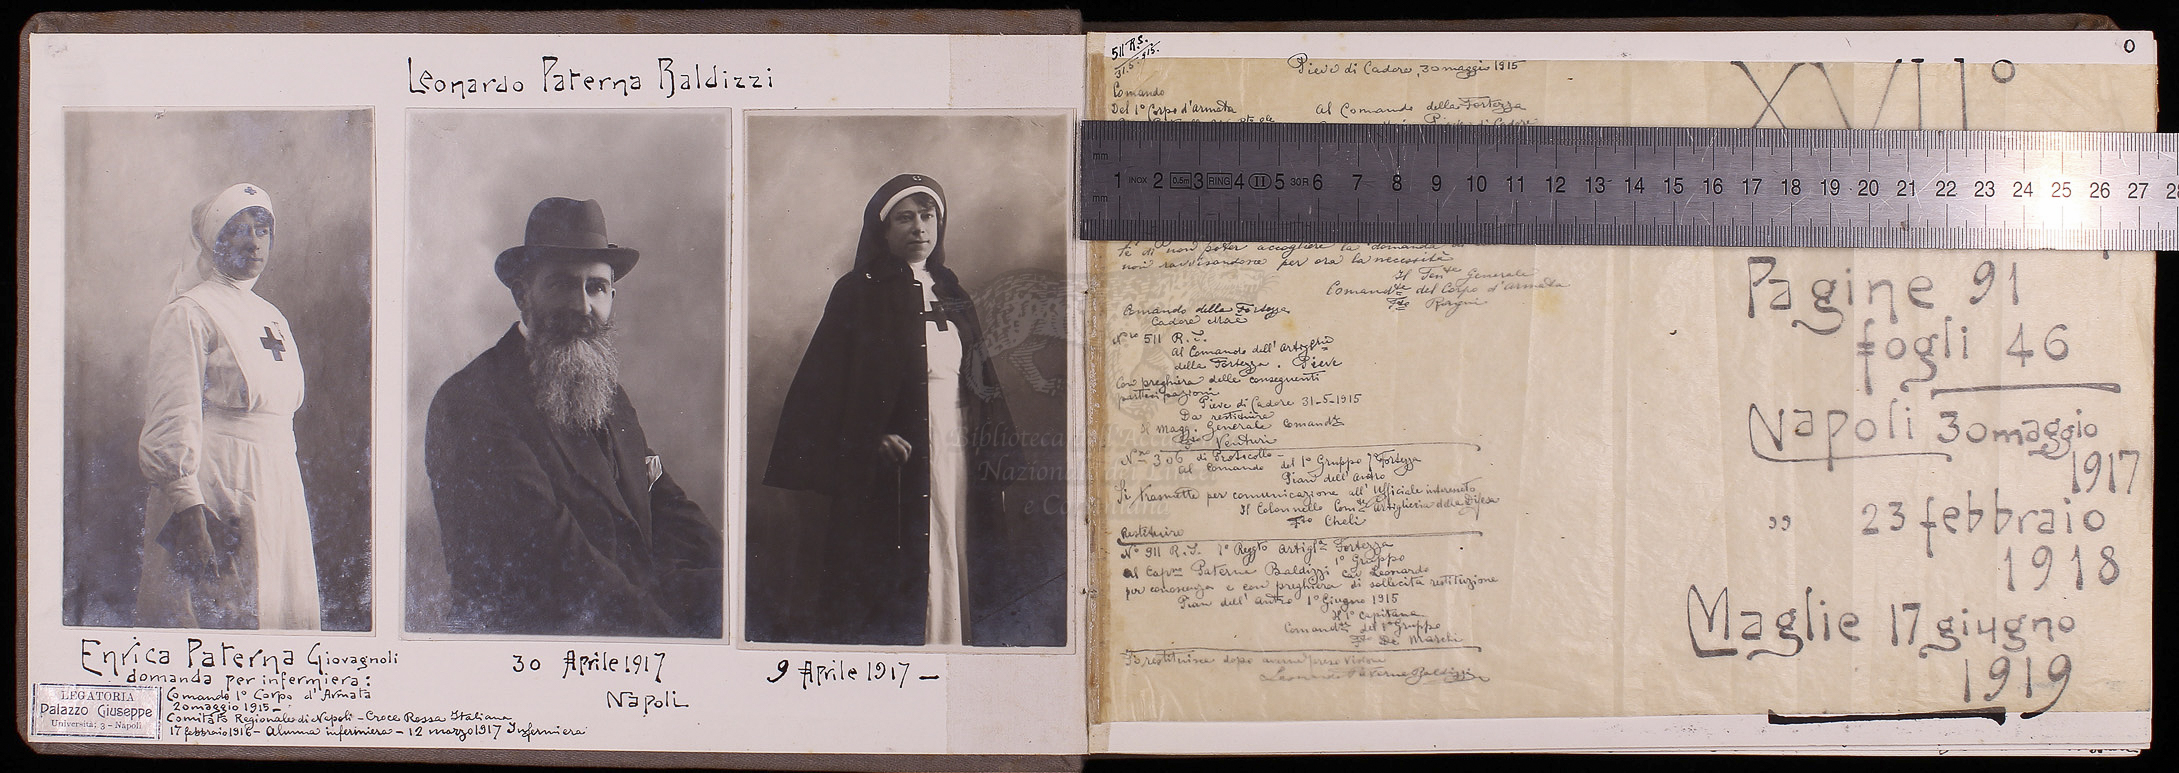 Leonardo Paterna Baldizzi
Enrica Paterna Giovagnoli
domanda per infermiera:
Comando 1º Corpo d'Armata
20 maggio 1915 –
Comitato Regionale di Napoli – Croce Rossa Italiana
17 febbraio 1916 – Alunna infermiera – 12 marzo 1917 Infermiera
LEGATORIA
Palazzo Giuseppe
Università, 3 – Napoli
30 Aprile 1917
Napoli
9 Aprile 1917 –
511 R.S.
31.5.915.
Pieve di Cadore, 30 maggio 1915
Comando
Del 1º Corpo d'armata
Al Comando della Fortezza
Pieve di Cadore
mm
1 INOX 2 0.5m 3 RING 4 II 5 30R 6 7 8 9 10 11 12 13 14 15 16 17 18 19 20 21 22 23 24 25 26 27 28
mm
di non poter accogliere la domanda
non ravvisandone per ora la necessità
Il Tente Generale
Comandte del Corpo d'Armata
Fto
Comando della Fortezza
Cadore Maè
Nro 511 R.
al Comando dell'Artiglia
della Fortezza. Pieve
Con preghiera delle conseguenti
partecipazioni
Pieve di Cadore 31-5-1915
Da restituire
Il Magg. Generale Comandte
Fto Venturi
Nro 306 di Protocollo –
al Comando del 1º Gruppo 7 Fortezza
Pian dell'Antro
Si trasmette per comunicazione all'Ufficiale interessato
Il Colonnello Comte Artiglieria della Difesa
Fto Cheli
Restituire
Nº 911 R.S. 7º Reggto Artiglia Fortezza
1º Gruppo
Al Capno Paterna Baldizzi Cav Leonardo
per conoscenza e con preghiera di sollecita restituzione
Pian dell'Antro 1º Giugno 1915
Il 1º Capitano
Comandte del 1º Gruppo
Fto De Marchi
Si restituisce dopo averne preso visione
Leonardo Paterna Baldizzi
0
XVIIº
Pagine 91
fogli 46
Napoli 30 maggio
1917
" 23 febbraio
1918
Maglie 17 giugno
1919
Biblioteca dell'Accademia
Nazionale dei Lincei
e Corsiniana